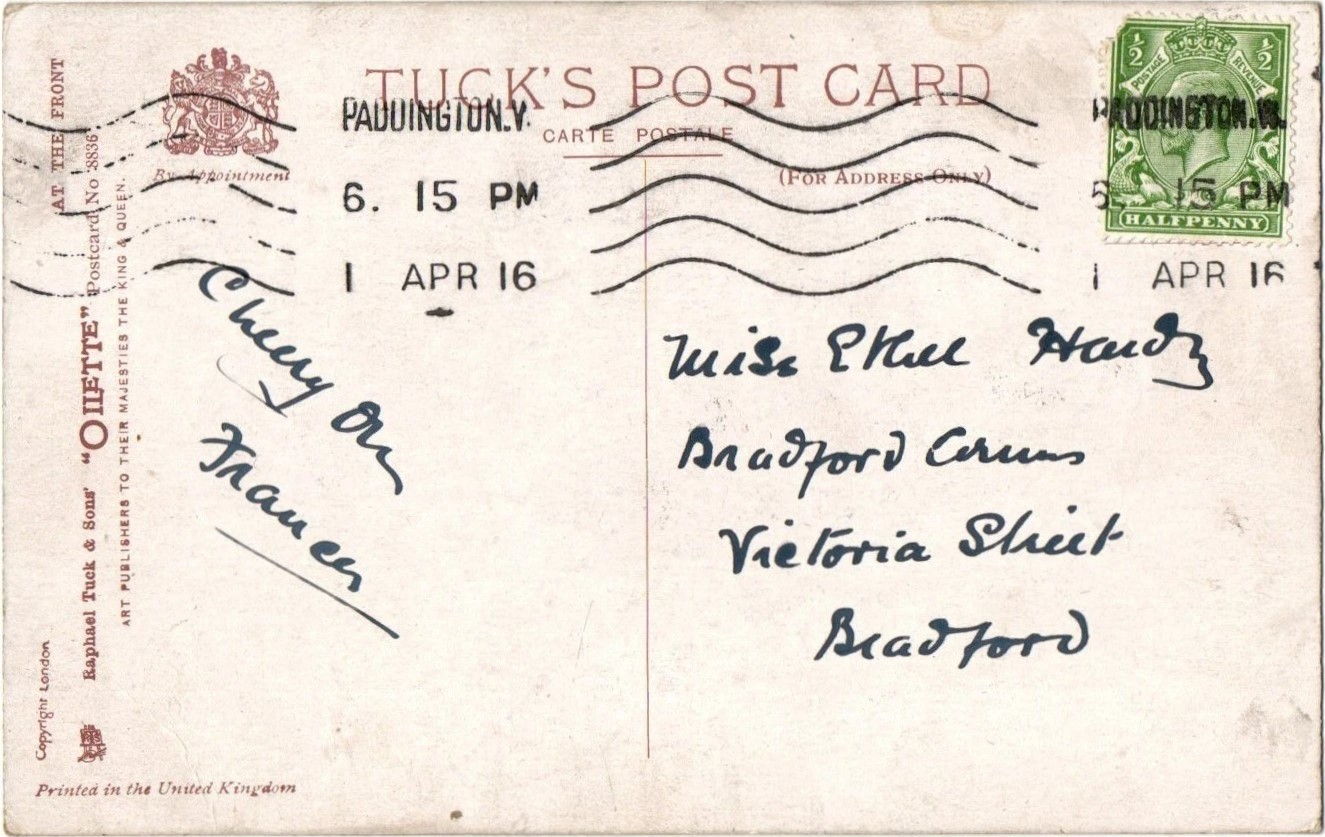 TUCK'S POST CARD
CARTE POSTALE
(FOR ADDRESS ONLY)
By Appointment
PADDINGTON.W.
6. 15 PM
1 APR 16
PADDINGTON.W.
6. 15 PM
1 APR 16
½ ½
POSTAGE REVENUE
HALFPENNY
AT THE FRONT
Raphael Tuck & Sons' "OILETTE" Postcard No 8836.
ART PUBLISHERS TO THEIR MAJESTIES THE KING & QUEEN.
Copyright London
Printed in the United Kingdom
Cheery Oh
Frances
Miss Ethel Hardy
Bradford
Victoria Street
Bradford